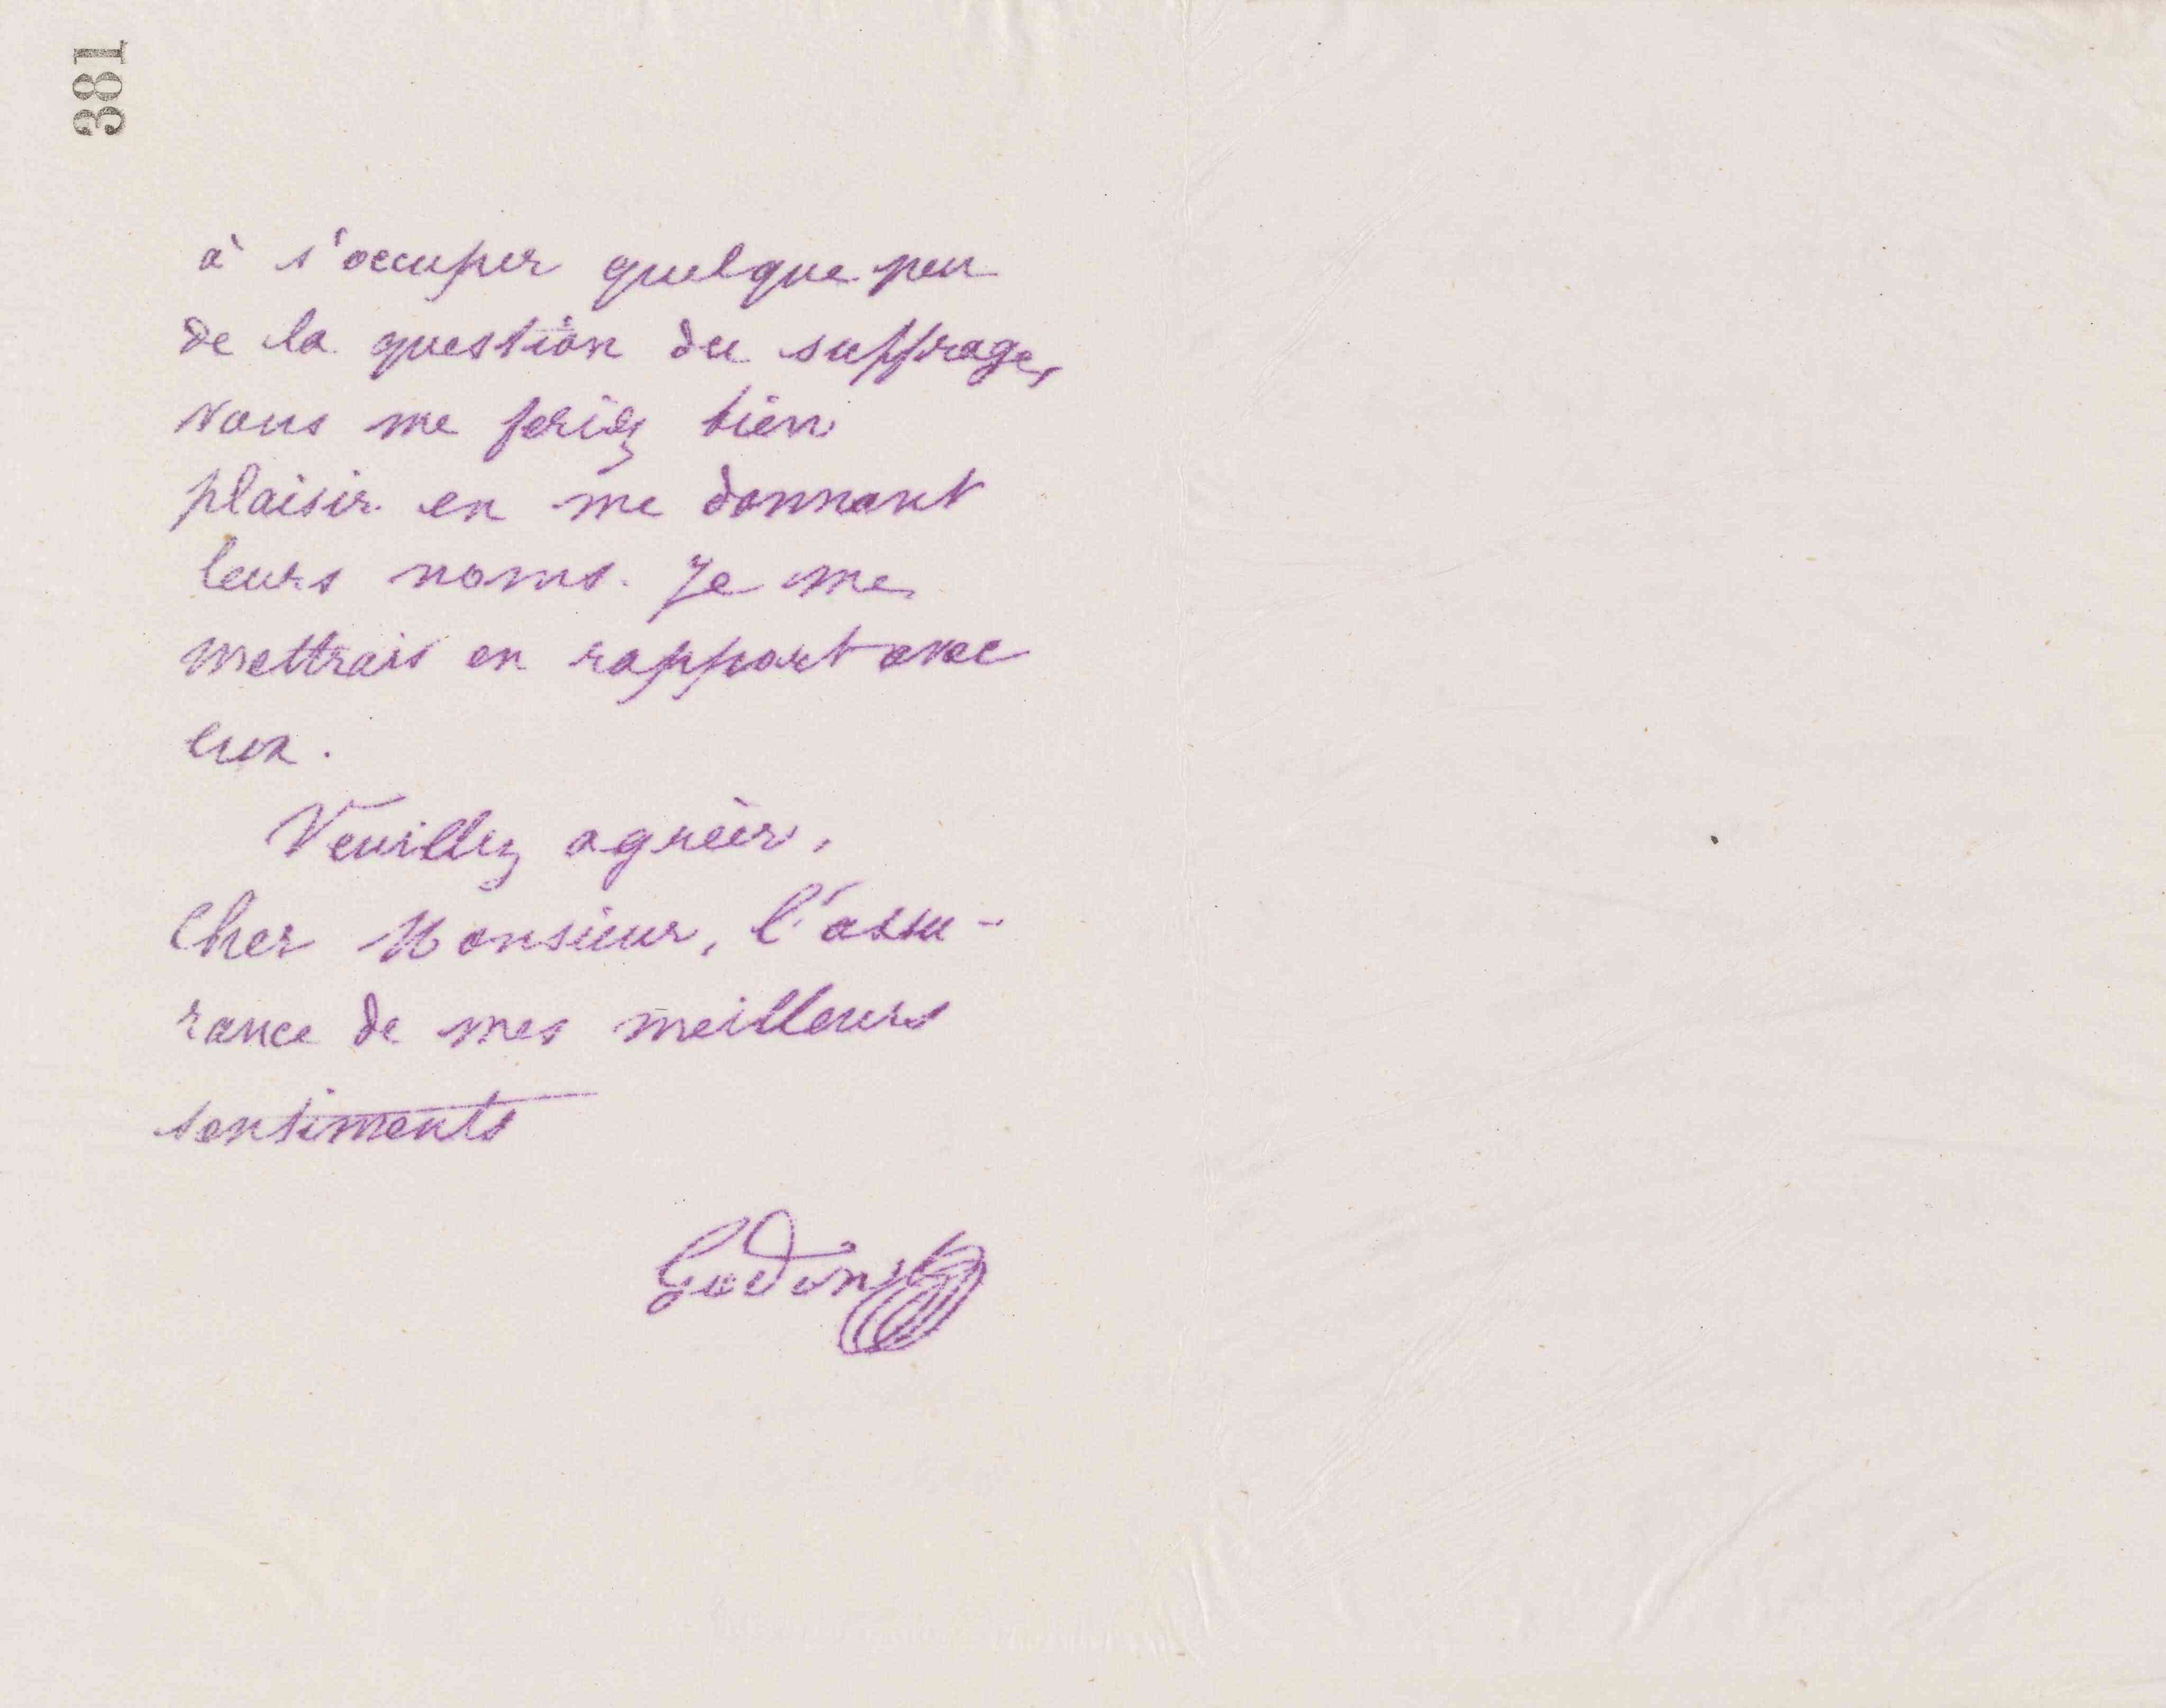 381
à s'occuper quelque peu
de la question du suffrage,
vous me feriez bien
plaisir en me donnant
leurs noms. Je me
mettrais en rapport avec
eux.
Veuillez agréer,
Cher Monsieur, l'assu-
rance de mes meilleurs
sentiments